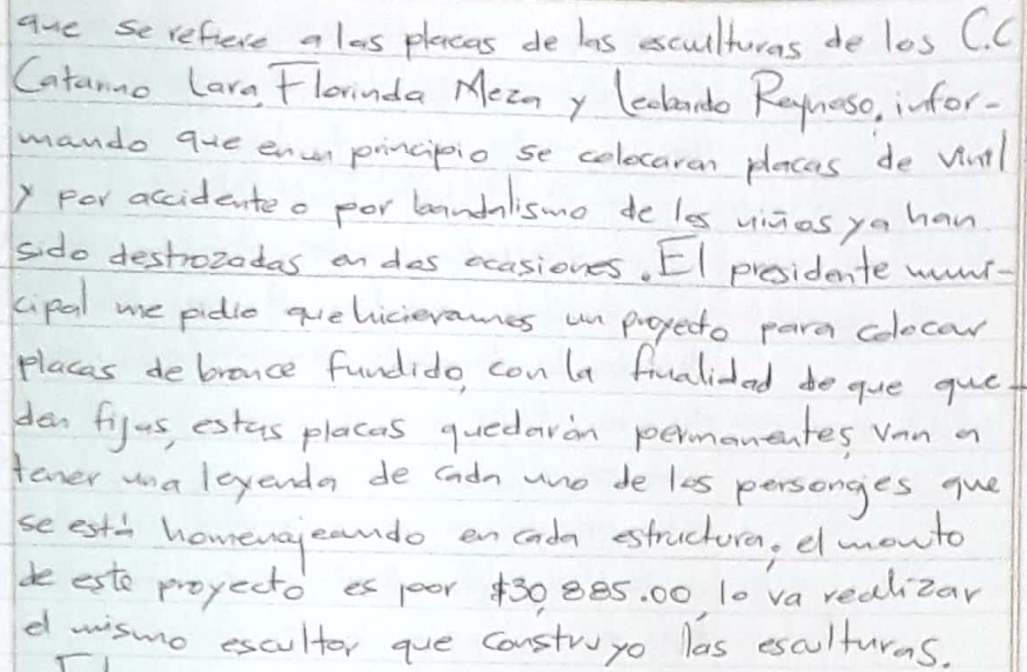 que se refiere a las placas de las esculturas de los C.C
Catarino Lara, Florinda Meza y Leobardo Reynoso, infor-
mando que en un principio se colocaran placas de vinil
y por accidente o por bandalismo de los niños ya han
sido destrozadas en dos ocasiones. El presidente muni-
cipal me pidio que hicieramos un proyecto para colocar
placas de bronce fundido, con la finalidad de que que-
den fijas, estas placas quedarán permanentes, van a
tener una leyenda de cada uno de los personajes que
se está homenajeando en cada estructura, el monto
de este proyecto es por $30,885.00, lo va realizar
el mismo escultor que construyo las esculturas.